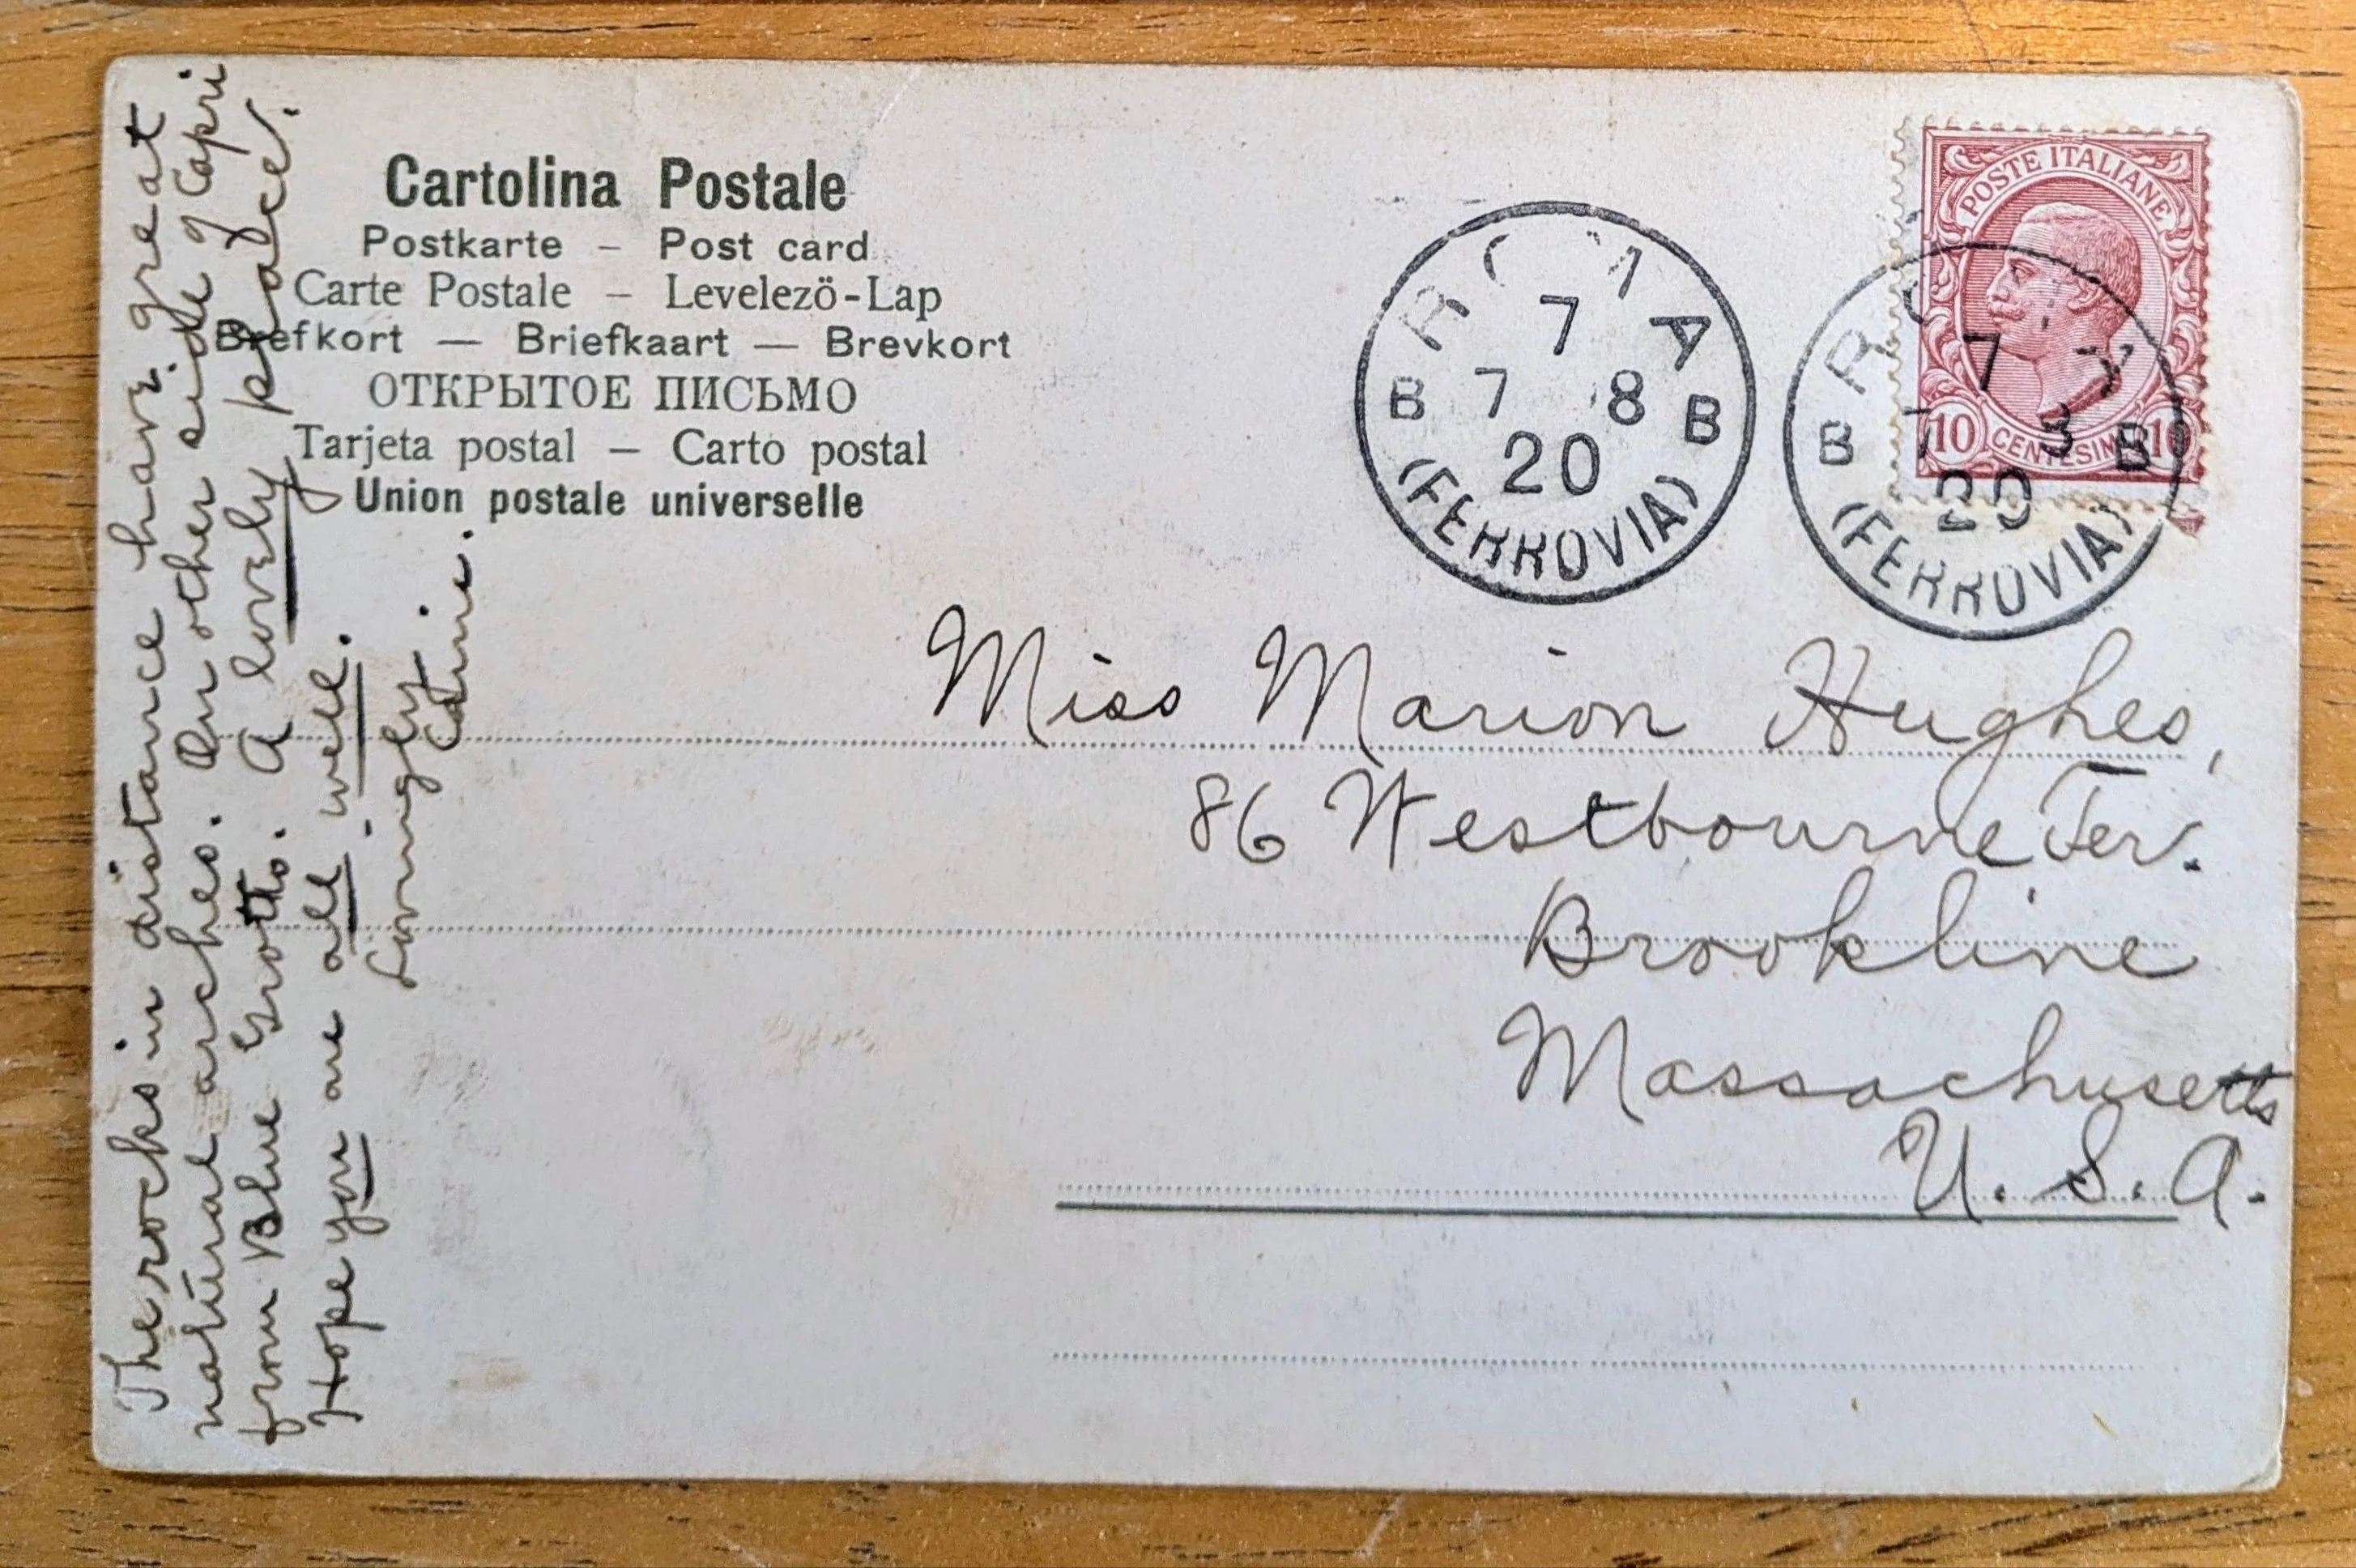 Cartolina Postale
Postkarte – Post card
Carte Postale – Levelezö-Lap
Brefkort — Briefkaart — Brevkort
ОТКРЫТОЕ ПИСЬМО
Tarjeta postal – Carto postal
Union postale universelle
The rocks in distance have great
natural arches. On other side of Capri
from Blue Grotto. A lovely place.
Hope you are all well.
Lovingly
7
7 8
B B
20
(FERROVIA)
7
B B
20
(FERROVIA)
POSTE ITALIANE
10 CENTESIMI 10
Miss Marion Hughes,
86 Westbourne Ter.
Brookline
Massachusetts
U. S. A.